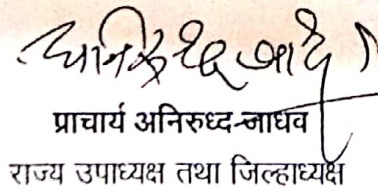 अनिरुद्ध जाधव
प्राचार्य अनिरुध्द जाधव
राज्य उपाध्यक्ष तथा जिल्हाध्यक्ष